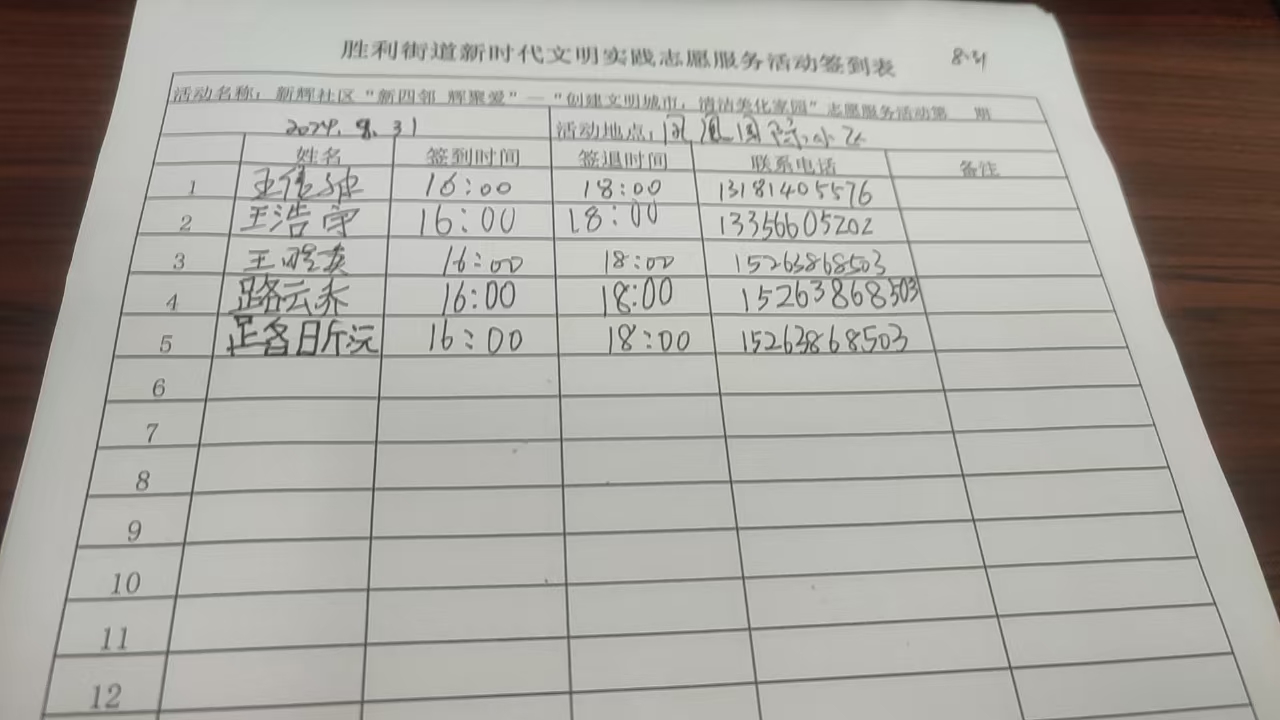 胜利街道新时代文明实践志愿服务活动签到表
8.31
活动名称：新辉社区“新四邻 辉聚爱”—“创建文明城市，清洁美化家园”志愿服务活动第 期
2024.8.31 活动地点：凤凰国际小区
姓名 签到时间 签退时间 联系电话 备注
1 王 16:00 18:00 13181405576
2 王浩宇 16:00 18:00 13356605202
3 王 16:00 18:00 15263868503
4 路云乔 16:00 18:00 15263868503
5 路昕沅 16:00 18:00 15263868503
6
7
8
9
10
11
12